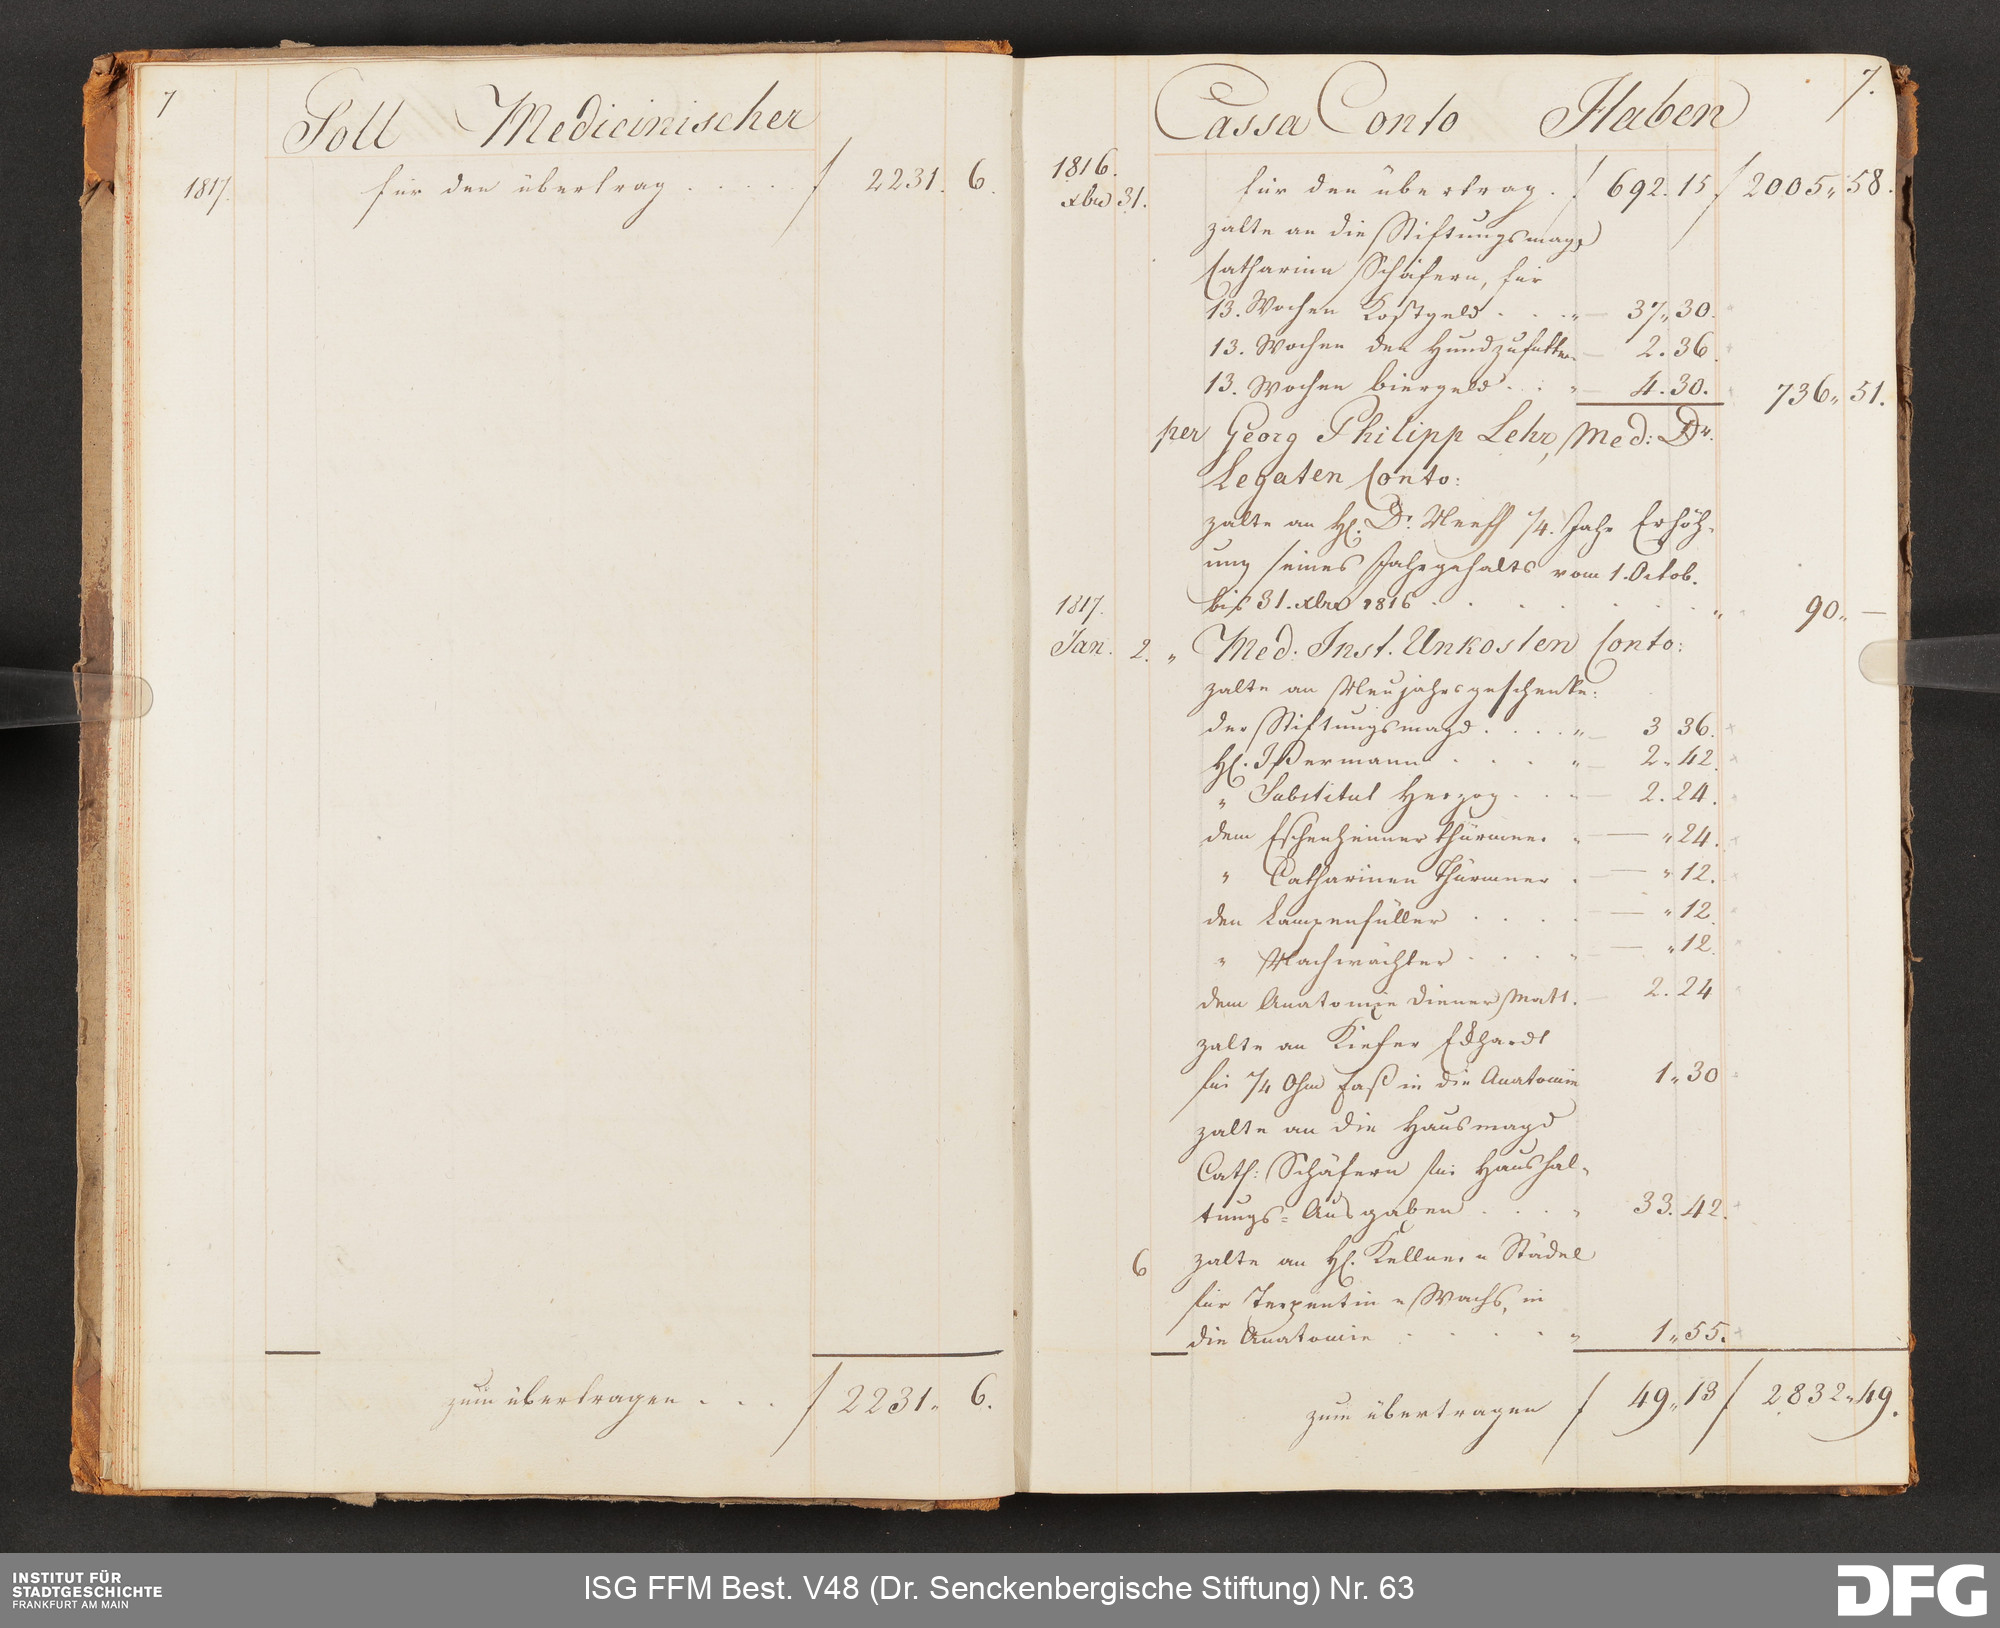 7
Soll Medicinischer
1817. für den übertrag . . . . f 2231. 6.
zum übertragen . . . f 2231. 6.
Cassa Conto Haben 7.
1816.
xbre 31. für den übertrag . f 692. 15 f 2005 " 58.
zalte an die Stiftungsmagd
Catharine Schäfern, für
13. Wochen Kostgeld . . . " 37 " 30.
13. Wochen den Hund zu futtern 2. 36.
13. Wochen biergeld . . " 4. 30. 736 " 51.
per Georg Philipp Lehr, Med: Dr.
Legaten Conto:
zalte an H. Dr. Neeff 1/4. Jahr Erhöh-
ung seines Jahrgehalts vom 1. Octob.
bis 31. xbre 1816 . . . . . . . " 90 " —
1817.
Jan. 2. " Med. Inst. Unkosten Conto:
zalte an Neujahrsgeschenke:
der Stiftungsmagd . . . . " 3 36.
H. Ißermann . . . . " 2 " 42.
" Substitut Herzog . . " 2. 24.
dem Eschenheimer thürmer " — " 24.
" Catharinen thürmer . — " 12.
den Lampenfüller . . . . — " 12.
" Nachwächter . . . . " — " 12.
dem Anatomie diener Matt. 2. 24
zalte an Kiefer Eckhardt
für 1/4 Ohm Faß in die Anatomie 1 " 30
zalte an die Hausmagd
Cath: Schäfern für Haushal-
tungs-Ausgaben . . . " 33. 42.
6 zalte an H. Kellner u Städel
für Terpentin u Wachs, in
die Anatomie . . . . . " 1 " 55.
zum übertragen f 49 " 13 f 2832 " 49.
INSTITUT FÜR
STADTGESCHICHTE
FRANKFURT AM MAIN
ISG FFM Best. V48 (Dr. Senckenbergische Stiftung) Nr. 63
DFG